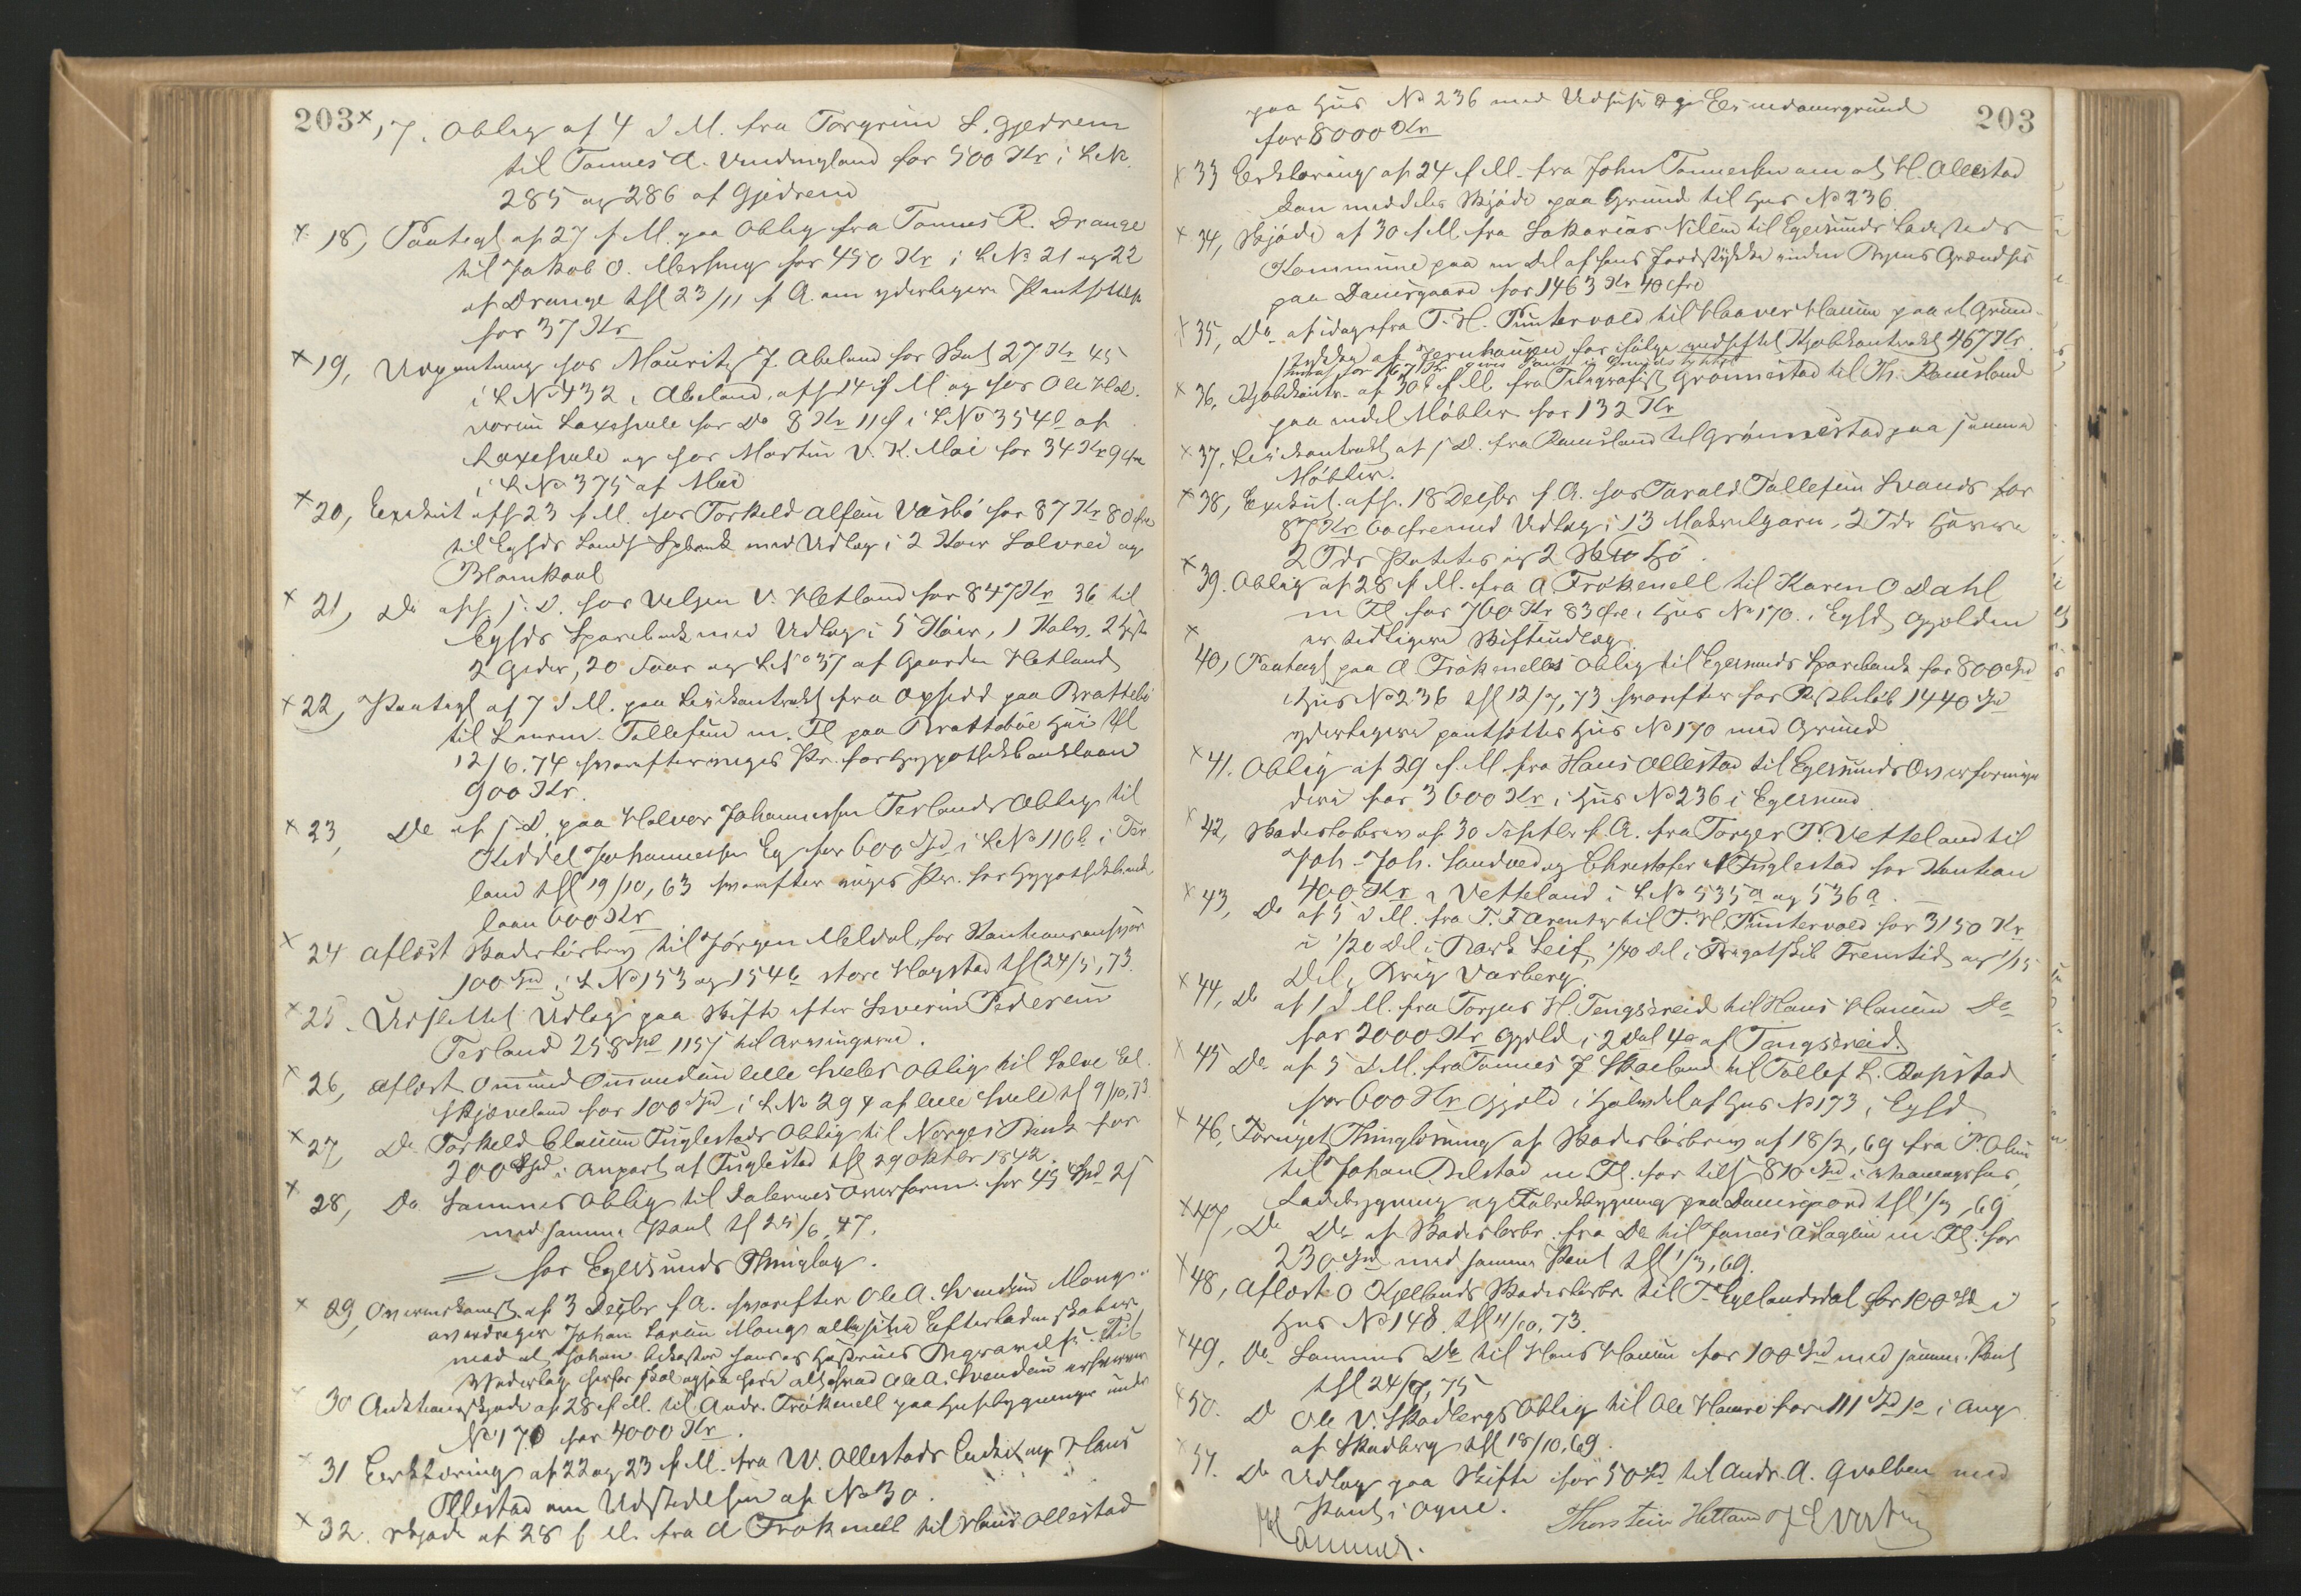 203
× 17. Oblig af 4 d M. fra Torgrim L. Gjedrem
til Tonnes A. for 500 Kr i LNr.
285 og 286 af Gjedrem
× 18, Pantegt af 27 f M. paa Oblig fra Tønnes R. Drange
til Jakob O. for 450 Kr i LNo 21 og 22
af Drange thl 23/11 f A. om yderligere Pantsættelse
for 37 Kr
× 19, Udpantning hos Mauritz J. Abeland for Skat 27 Kr 45
i LNo 432 i Abeland, afh 14 f M og hos Ole Hal-
vorsen Laxesvele for Do 8 Kr 11 ø i LNo 354 af
Laxesvele og hos Martin V. K. Moi for 34 Kr 94 ø
i LNo 375 af Moi
× 20, Exekut. afh 23 f M. hos Torkeld Alfsen Vasbø for 87 Kr 80 Øre
til Egsds Lands Spbank med Udlæg i 2 Køer Solvrei og
Blomkoll
× 21, Do afh s. D. hos Velgen V. Hetland for 847 Kr 36 til
Egsds Sparebank med Udlæg i 5 Køer, 1 Kalv, 2 Heste
2 Geder, 20 Faar og LNo 37 af Gaarden Hetland
× 22, Pantegt af 7 d M. paa Leiekontrakt fra Opsidd. paa Bratteb
til Laurn. Tollefsen m. Fl paa Brattebøe Hei thl
12/6.74 hvorefter viges Pr. for Hypothekbanklaan
900 Kr.
× 23, Do af s. D. paa Halvor Johannessen Terlands Oblig til
Keddel Johannessen Eg for 600 Spd i LNo 110 b i Ter
land thl 19/10, 63 hvorefter viges Pr. for Hypothekbank
laan 600 Kr
× 24 Aflæst Skadesløsbrev til Jørgen Meldal for Kautionsansvar
100 Spd i LNo 153 og 154 b store Hogstad thl 24/5, 73.
× 25. Udslettet Udlæg paa Skifte efter Severin Pedersen
Terland 258 Spd 115 s til Arvingerne.
× 26, Aflæst Omund Omundsen lille Sveles Oblig til Salve El.
Skjæveland for 100 Spd i LNo 294 af lille Svele thl 9/10, 73
× 27, Do Torkeld Clausen Fuglestads Oblig til Norges Bank for
200 Spd i Anpart af Fuglestad thl 29 Oktbr 1842.
× 28, Do Sammes Oblig til Dalernes Overform. for 45 Spd 2 s
med samme Pant thl 25/6, 47.
= for Egersunds Thinglag.
× 29, Overenskomst af 3 Decbr f A. hvorefter Ole A. Svendsen Mong
overdrager Johan Larsen Mong alle sine Efterladenskaber
mod at Johan bekoster hans og Hustrues Begravelse. Til
Vederlag herfor skal ogsaa høre alt hvad Ole A. Svendsen erhverver
30 Auktionsskjøde af 28 f M. til Andr. Frøkenell paa Husebygninger under
No 170 for 4000 Kr.
× 31 Erklæring af 22 og 23 f M. fra W. Ollestads Enke og Hans
Ollestad om Udstedelsen af No 30.
× 32. Skjøde af 28 f M. fra A Frøkenell til Hans Ollestad
203
paa Hus No 236 med Udhuse og Eiendomsgrund
for 8000 Kr
× 33 Erklæring af 24 f M. fra John Tønnessen om at H. Ollestad
kan meddeles Skjøde paa Grund til Hus No 236.
× 34, Skjøde af 30 f M. fra Sakarias Nilsen til Egersunds Ladesteds
Kommune paa en Del af hans Jordstykke inden Byens Grændser
paa Damsgaard for 1463 Kr 40 Øre
× 35, Do af idag fra T. H. Puntervold til Haaver Hansen paa et Grund-
stykke af Jernhaugen for ifølge vedheftet Kjøbekontrakt 467 Kr.
× 36, Kjøbekontr. af 30 f M. fra Telegrafist Grønnestad til Th. Ramsland
paa endel Møbler for 132 Kr
× 37, Leiekontrakt af s D. fra Ramsland til Grønnestad paa samme
Møbler.
× 38, Exekut. afh. 18 Decbr f. A. hos Tarald Tollefsen Svands for
87 Kr 60 Øre med Udlæg i 13 Makrelgarn, 2 Tdr Havre
2 Tdr Poteter og 2 Hø.
× 39. Oblig af 28 f M. fra A Frøkenell til Karen O Dahl
m Fl for 760 Kr 83 Øre i Hus No 170. i Egsd Gjælden
er tidligere Skifteudlæg.
× 40, Pantegt paa A Frøkenells Oblig til Egersunds Sparebank for 800 Spd
i Hus No 236 thl 12/7, 73 hvorefter for Restbeløb 1440 Spd
yderligere pantsættes Hus No 170 med Grund
× 41. Oblig af 29 f. M fra Hans Ollestad til Egersunds Overformyn
deri for 3600 Kr i Hus No 236 i Egersund
× 42, Skadesløsbrev af 30 Septbr f. A. fra Torger P. Vetteland til
Joh. Joh. Sandved og Christofer N Fuglestad for Kaution
400 Kr i Vetteland i LNo 535 a og 536 a.
× 43, Do af 5 d M. fra T. F. Arentz til T. H. Puntervold for 3150 Kr
i 1/20 Del i Bark Leif, 1/40 Del i Fregatskib Fremtid og 1/15
Del i Brig Varberg.
× 44, Do af 1 d M. fra Torjus H. Tengsereid til Hans Hansen Do
for 2000 Kr Gjæld i 2 Del 4 a af Tengsereid.
× 45 Do af 5 d M. fra Tønnes J Skaaland til Tollef L. Rapstad
for 600 Kr Gjæld i Halvdel af Hus No 173, i Egsd
× 46, Fornyet Thinglæsning af Skadesløsbrev af 18/2, 69 fra P. Olsen
til Johan Belstad m Fl. for tils 810 Spd i Vaaningshus,
Ladebygning og Fabrikbygning paa Damsgaard thl 1/3, 69
× 47, Do Do af Skadesløsbr. fra Do til Jonas Aslagsen m. Fl. for
230 Spd med samme Pant thl 1/3, 69.
× 48, Aflæst O Kjellands Skadesløsbr. til T. Egelandsdal for 100 Spd i
Hus No 148. thl 4/10, 73.
× 49, Do Sammes Do til Hans Hansen for 100 Spd med samme Pant
thl 24/7, 75
× 50. Do Ole V. Skadbergs Oblig til Ole Hansen for 111 Spd i
af Skadberg thl 18/10, 69.
× 51. Do Udlæg paa Skifte for 50 Spd til Andr. A. Qvalben med
Pant i Ogne.
Thorstein Hetland